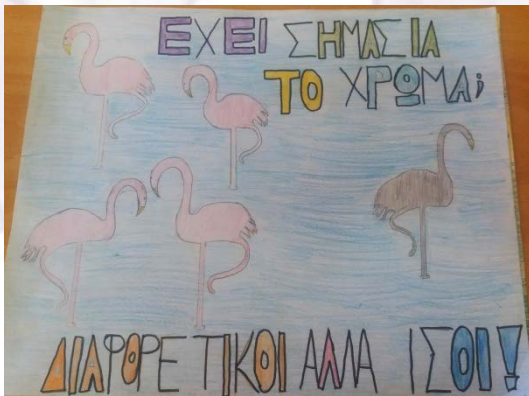 ΕΧΕΙ ΣΗΜΑΣΙΑ
ΤΟ ΧΡΩΜΑ;
ΔΙΑΦΟΡΕΤΙΚΟΙ ΑΛΛΑ ΙΣΟΙ!